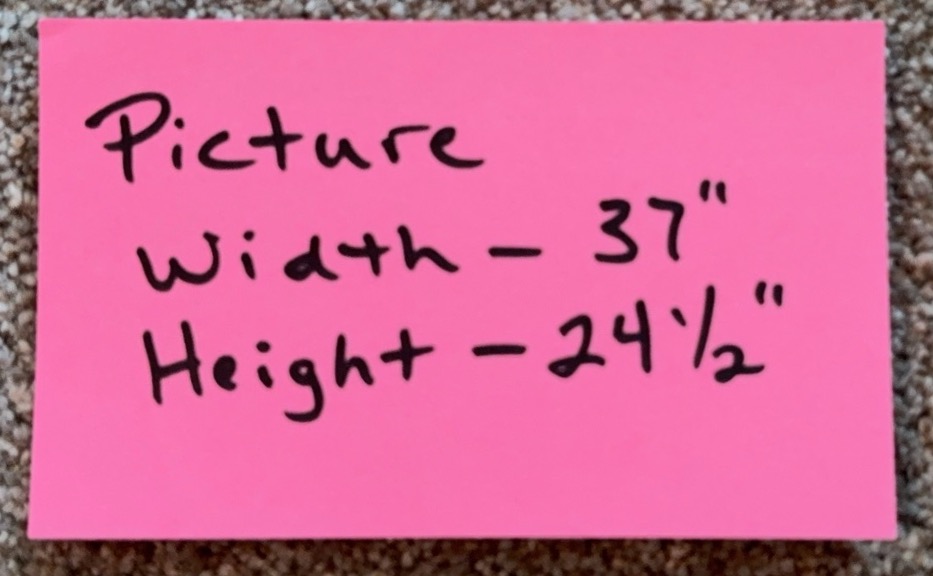 Picture
Width - 37"
Height - 24 1/2"